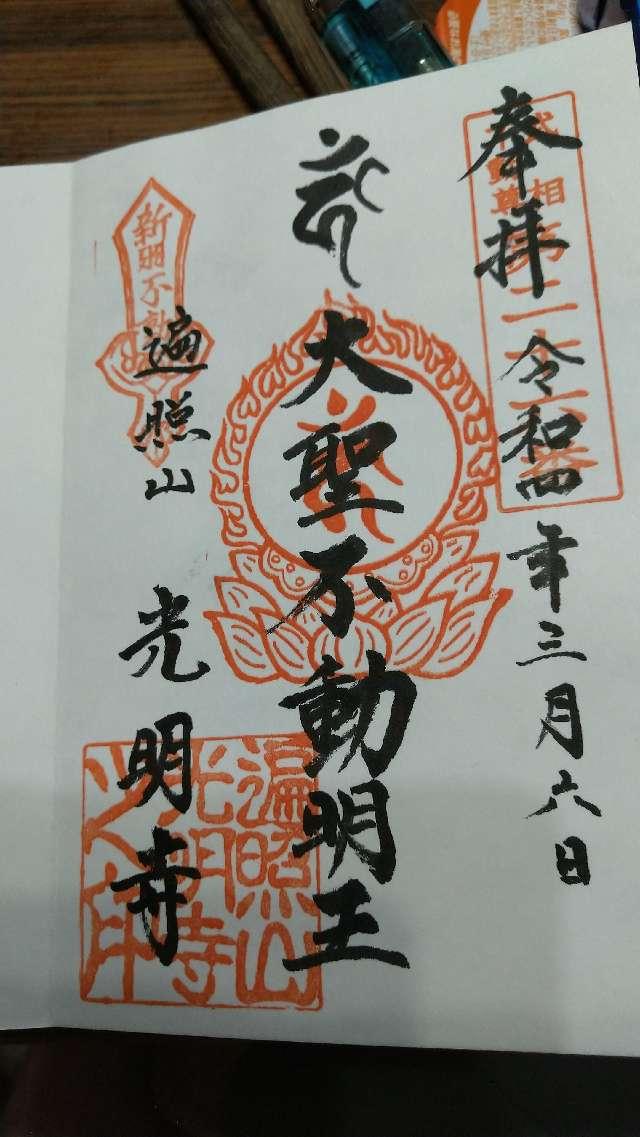 奉拝
令和四年三月六日
大聖不動明王
遍照山
光明寺
遍照山
光明寺
之印